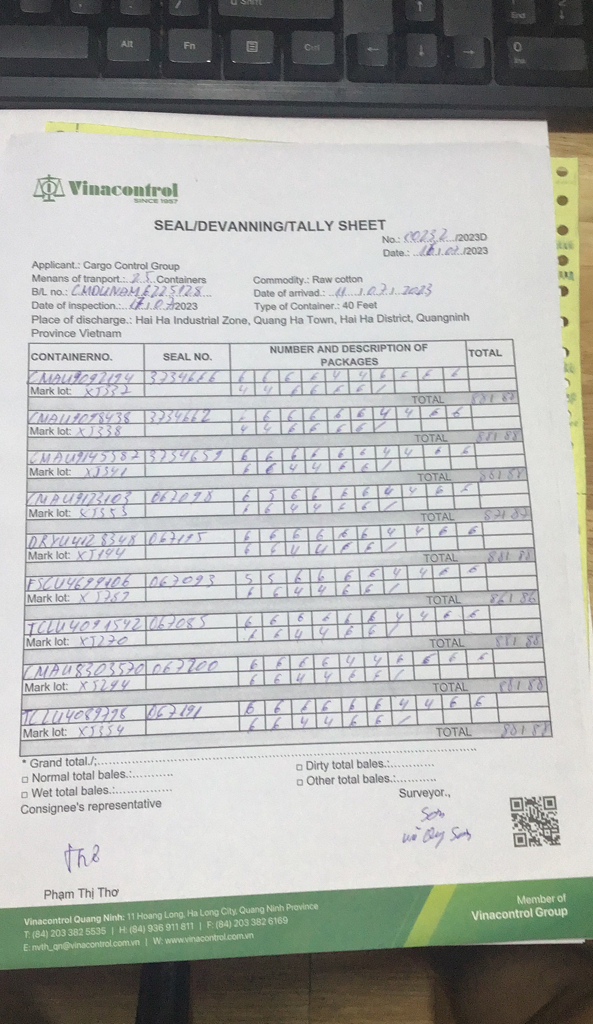 Alt
Fn
Ctrl
End
0
Ins
Vinacontrol
SINCE 1957
SEAL/DEVANNING/TALLY SHEET
No.: 00232 /2023D
Date.: /2023
Applicant.: Cargo Control Group
Menans of tranport.: 25 Containers
Commodity.: Raw cotton
B/L no.:
Date of arrivad.: 11.07.2023
Date of inspection.: /2023
Type of Container.: 40 Feet
Place of discharge.: Hai Ha Industrial Zone, Quang Ha Town, Hai Ha District, Quangninh
Province Vietnam
CONTAINERNO. SEAL NO. NUMBER AND DESCRIPTION OF PACKAGES TOTAL
3734666 6 6 6 6 4 4 6 6 6 6
Mark lot: XJ337 4 4 6 6 6 6 /
TOTAL 88
CMAU9098438 3734662 6 6 6 6 6 6 4 4 6 6
Mark lot: XJ338 4 4 6 6 6 6 /
TOTAL 88
CMAU9145587 3734659 6 6 6 6 6 6 4 4 6 6
Mark lot: XJ341 6 6 4 4 6 6 /
TOTAL 88
CMAU9123103 067098 6 5 6 6 6 6 4 4 6 6
Mark lot: XJ353 6 6 4 4 6 6 /
TOTAL 87
DRYU4128348 067195 6 6 6 6 6 6 4 4 6 6
Mark lot: XJ144 6 6 4 4 6 6 /
TOTAL 88
FSCU4699106 067093 5 5 6 6 6 6 4 4 6 6
Mark lot: XJ287 6 6 4 4 6 6 /
TOTAL 86
TCLU4091542 067085 6 6 6 6 6 6 4 4 6 6
Mark lot: XJ270 6 6 4 4 6 6 /
TOTAL 88
CMAU8303570 067200 6 6 6 6 4 4 6 6 6 6
Mark lot: XJ294 6 6 4 4 6 6 /
TOTAL 88
067191 6 6 6 6 6 6 4 4 6 6
Mark lot: XJ354 6 6 4 4 6 6 /
TOTAL 88
* Grand total./;
□ Normal total bales.:
□ Dirty total bales.:
□ Wet total bales.:
□ Other total bales.:
Consignee's representative
Surveyor.,
Phạm Thị Thơ
Vinacontrol Quang Ninh: 11 Hoang Long, Ha Long City, Quang Ninh Province
T: (84) 203 382 5535 | H: (84) 936 911 811 | F: (84) 203 382 6169
E: nvth_qn@vinacontrol.com.vn | W: www.vinacontrol.com.vn
Member of
Vinacontrol Group